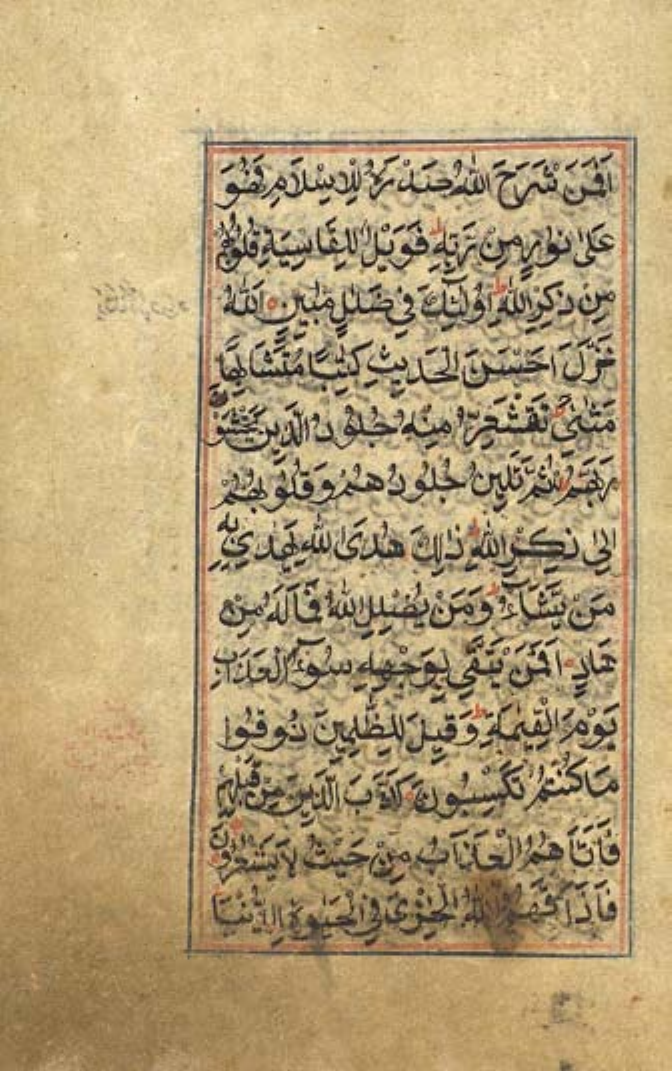 اَفَمَنْ شَرَحَ اللّٰهُ صَدْرَهُ لِلْاِسْلَامِ فَهُوَ
عَلٰى نُورٍ مِنْ رَبِّهٖ فَوَيْلٌ لِلْقَاسِيَةِ قُلُوبُهُمْ
مِنْ ذِكْرِ اللّٰهِ اُولٰئِكَ فِي ضَلٰلٍ مُبِينٍ اَللّٰهُ
نَزَّلَ اَحْسَنَ الْحَدِيثِ كِتٰبًا مُتَشَابِهًا
مَثَانِيَ تَقْشَعِرُّ مِنْهُ جُلُودُ الَّذِينَ يَخْشَوْنَ
رَبَّهُمْ ثُمَّ تَلِينُ جُلُودُهُمْ وَقُلُوبُهُمْ
اِلٰى ذِكْرِ اللّٰهِ ذٰلِكَ هُدَى اللّٰهِ يَهْدِي بِهٖ
مَنْ يَشَآءُ وَمَنْ يُضْلِلِ اللّٰهُ فَمَالَهُ مِنْ
هَادٍ اَفَمَنْ يَتَّقِي بِوَجْهِهٖ سُوٓءَ الْعَذَابِ
يَوْمَ الْقِيٰمَةِ وَقِيلَ لِلظّٰلِمِينَ ذُوقُوا
مَا كُنْتُمْ تَكْسِبُونَ كَذَّبَ الَّذِينَ مِنْ قَبْلِهِمْ
فَاَتَاهُمُ الْعَذَابُ مِنْ حَيْثُ لَا يَشْعُرُونَ
فَاَذَاقَهُمُ اللّٰهُ الْخِزْيَ فِي الْحَيٰوةِ الدُّنْيَا